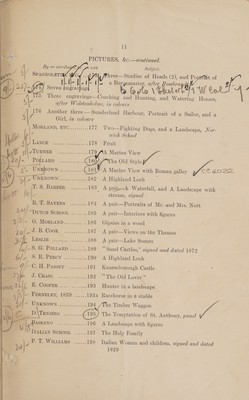 11
PICTURES, &c.—continued.
By or attributed to Subject.
Three—Studies of Heads (2), and Portrait of
a Burgomaster, after Rembrandt
Seven engravings
175 Three engravings—Coaching and Hunting, and Watering Horses,
after Wolstenholme, in colours
176 Another three—Sunderland Harbour, Portrait of a Sailor, and a
Girl, in colours
MORLAND, ETC. 177 Two—Fighting Dogs, and a Landscape, Norwich School
LANCE 178 Fruit
TURNER 179 A Marine View
POLLARD 180 The Old Style
UNKNOWN 181 A Marine View with Roman galley
UNKNOWN 182 A Highland Loch
T. S. BARBER 183 A pair—A Waterfall, and A Landscape with
stream, signed
R. T. SAYERS 184 A pair—Portraits of Mr. and Mrs. Nott
DUTCH SCHOOL 185 A pair—Interiors with figures
G. MORLAND 186 Gipsies in a wood
J. B. COOK 187 A pair—Views on the Thames
LESLIE 188 A pair—Lake Scenes
S. G. POLLARD 189 "Sand Castles," signed and dated 1872
S. R. PERCY 190 A Highland Loch
C. H. PASSEY 191 Knaresborough Castle
J. CRAIG 192 "The Old Lover"
E. COOPER 193 Hunter in a landscape
FERNELEY, 1839 193A Racehorse in a stable
UNKNOWN 194 The Timber Waggon
D. TENIERS 195 The Temptation of St. Anthony, panel
196 A Landscape with figures
ITALIAN SCHOOL 197 The Holy Family
P. T. WILLIAMS 198 Italian Woman and children, signed and dated
1829